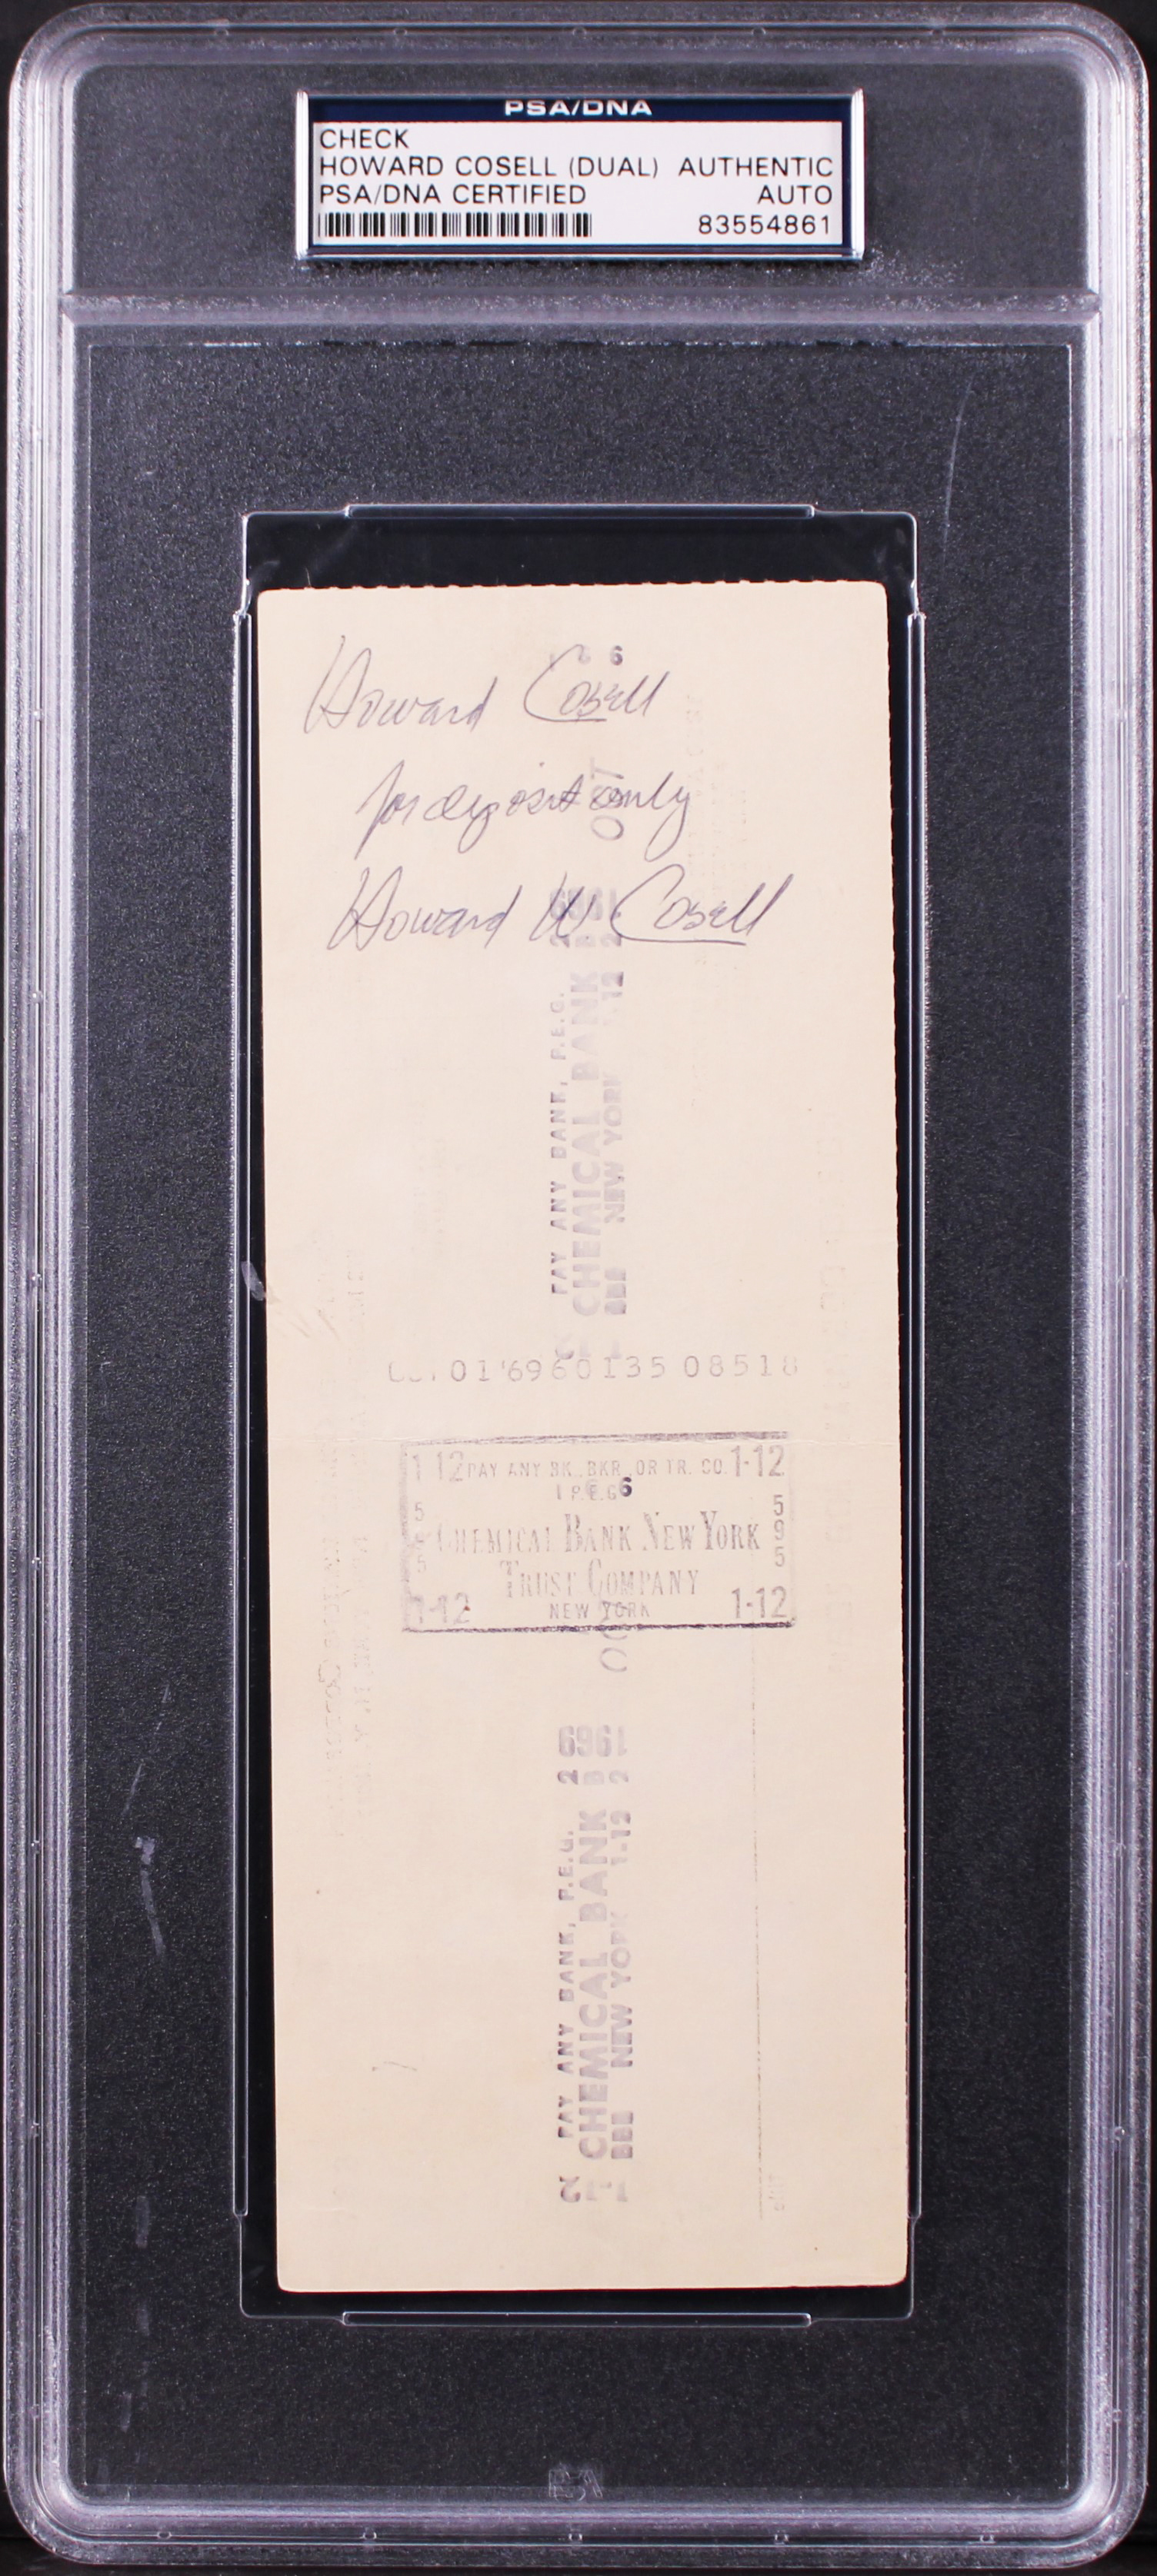 PSA/DNA
CHECK
HOWARD COSELL (DUAL) AUTHENTIC
PSA/DNA CERTIFIED AUTO
83554861
6
Howard Cosell
for deposit only
Howard W Cosell
OCT
2 1969
PAY ANY BANK, P.E.G.
CHEMICAL BANK
NEW YORK 1-12
01'69 60135 08518
1-12 PAY ANY BK., BKR., OR TR. CO. 1-12
P.E.G. 6
CHEMICAL BANK NEW YORK
TRUST COMPANY
1-12 NEW YORK 1-12
595
2 1969
PAY ANY BANK, P.E.G.
CHEMICAL BANK
NEW YORK 1-12
PSA